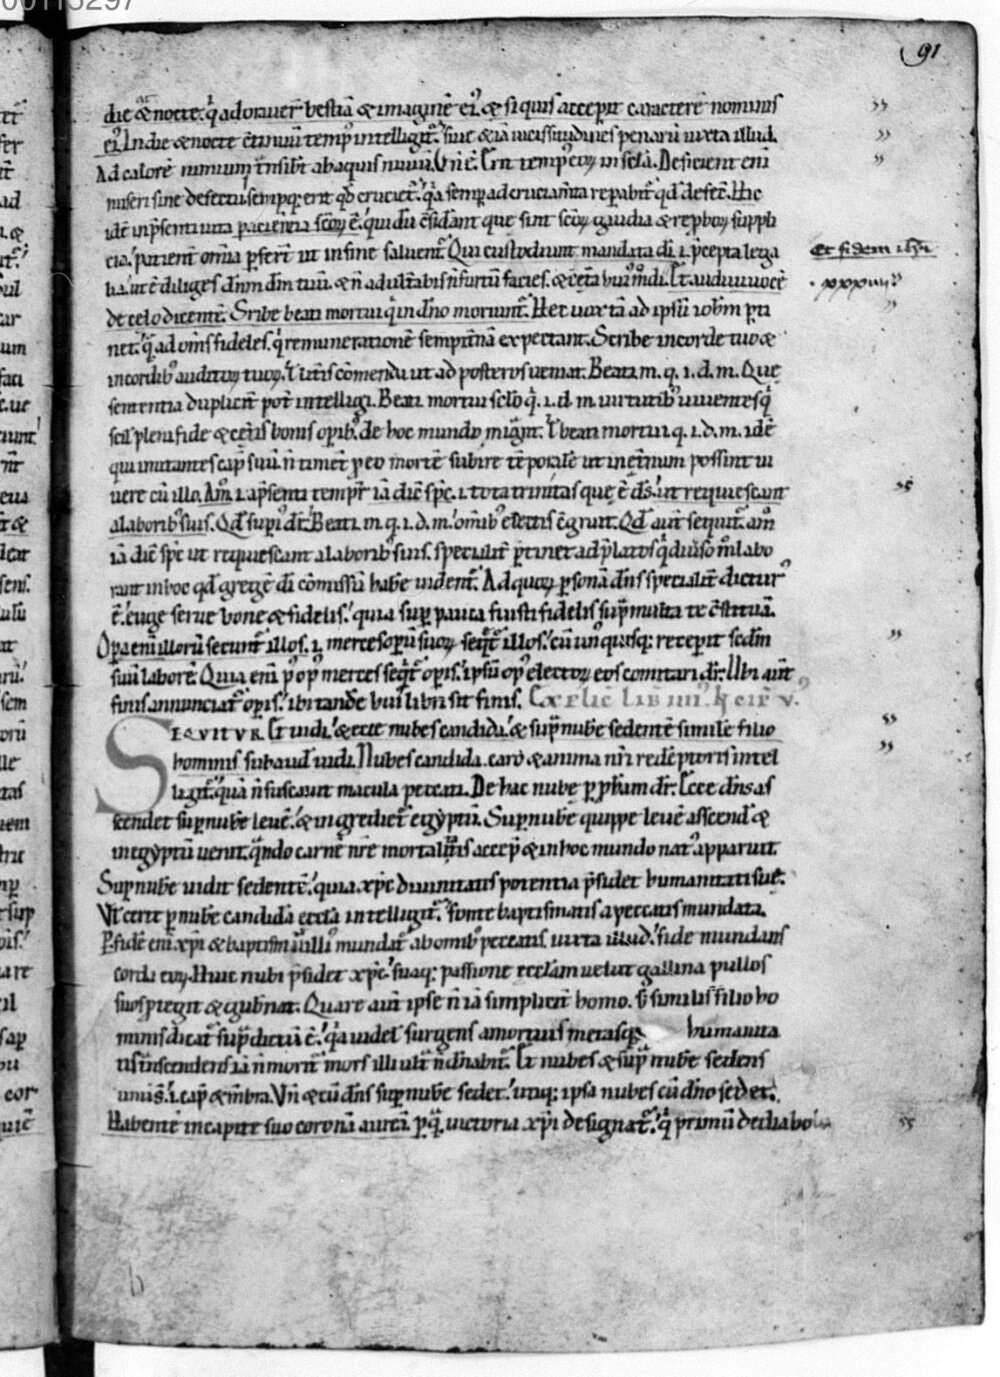 91
die & nocte. q̄ adoraver̄ bestiā & imaginē ei᷒ & siquis acceperit caracterē nominis
ei᷒. In die & nocte c̄tinuū temp᷒ intelligit᷑. sive etiā vicissitudines penarū iuxta illud.
Ad calorē nimium t̄nsibt̄ ab aquis nivium. Erit temp᷒ eoꝝ in scl̄a. Deficient eni
miseri sine defectu. sempq; erit
idē in p̄senti vita paciencia scōꝝ ē. qui dū c̄sidant que sint scōꝝ gaudia & rep̄boꝝ suppli
cia. patient᷑ omia p̄fert᷑ ut in fine salvent᷑. Qui custodiunt mandata dī .i. p̄cepta lega
et fidem ih̄u
lia ut ē diliges dn̄m dm̄ tuū. & n̄ adulterabis n̄ furtū facies. & cet̄a hui᷒modi. Et audivi vocē
de celo dicentē. Scribe beati mortui q̄ in dn̄o moriunt᷑. Hec vox tā ad ipsū ioh̄m p̄ti
net. q̄ ad om̄s fideles. q̄ remunerationē sempit̄nā expectant. Scribe in corde tuo &
in cordib᷒ auditoꝝ tuoꝝ. ł litt̄is cōmenda ut ad posteros veniat. Beati .m. q. i. d. m. Que
sententia duplicit᷑ pot̄ intelligi. Beati mortui sclo q̄. i. d. m. virtutib᷒ viventes q̄
scil᷑ pleni fide & cet̄is bonis opib᷒. de hoc mundo mig̃nt. ł beati mortui .q. i. d. m. idē
qui imitantes cap̄ suū. n̄ timent p eo mortē subire tēporalē ut in et̄num possint vi
vere cū illo. Am̄ .i. ap̄senti tempr̄ iā dic̄ sp̄c .i. tota trinitas que ē dš. ut requiescant
a laborib᷒ suis. Qd̄ sup᷑i᷒ dr̄. Beati .m. q. i. d. m. omib᷒ electis c̄gruit. Qd̄ aut̄ sequit᷑. am̄
iā dic̄ sp̄c ut requiescant a laborib᷒ suis. specialit᷑ ptinet ad p̄latos q̄ diviso m̄l labo
rant in hoc qd̄ gregē dī cōmissū habē vident᷑. Ad quoꝝ psonā dn̄s specialit᷑ dictur᷒
ē. euge serve bone & fidelis. quia sup̄ pauca fuisti fidelis sup̄ multa te c̄stituā.
Opa enī illorū secunt᷑ illos. .i. merces opū suoꝝ seqt᷑ illos. cū un᷒quisq; recepit scdm̄
suū laborē. Quia eni p᷒ op᷒ merces seqt᷑ opis. ipsū op᷒ electoꝝ eos comitari dr̄. Ubi aut̄
finis annunciat᷑ opis. ibi tande hui᷒ libri sit finis. Explic̄ lib̄ iiii᷒. Incip̄ v᷒.
SEQUITUR. Et vidi. & ecce nubes candida. & sup̄ nubē sedentē similē filio
hominis subaud᷑ vidi. Nubes candida. caro & anima nr̄i redēptoris intel
ligit᷑. quā n̄ fuscavit macula peccati. De hac nube p ꝓph̄am dr̄. Ecce dn̄s as
scendet sup̄ nubē levē. & ingrediet᷑ egyptū. Sup̄ nubē quippe levē ascend᷑ &
in egyptū venit. q̄ndo carnē nr̄e mortalitatis accep̄ & in hoc mundo nat᷒ apparuit.
Sup̄ nubē vidit sedentē. quia xp̄c divinitatis potentia p̄sidet humanitati sue.
Vl̄ certe p nubē candidā eccl̄ia intelligit᷑. fonte baptismatis a peccatis mundata.
P fidē eni xp̄i & baptism̄ illi᷒ mundat᷑ ab omib᷒ peccatis. iuxta illud. fide mundans
corda eoꝝ. Huic nubi p̄sidet xp̄c. suaq; passione eccl̄am velut gallina pullos
suos ptegit & gub̄nat. Quare aut̄ ipse n̄ iā simplicit᷑ homo. s᷑ similis filio ho
minis dicat᷑ sup̄dictū ē. q̄a videl᷑ surgens a mortuis metasq; humanita
tis t̄nscendens iā n̄ morit᷑ mors illi ult᷑ n̄ dn̄abit᷑. Et nubes & sup̄ nubē sedens
unū s᷑. i. cap̄ & mēbra. Vn̄ & cū dn̄s sup̄ nubē sedet. utiq; ipsa nubes cū dn̄o sedet.
Habentē in capite suo coronā aureā. p q̄ victoria xp̄i designat᷑. q̄ primū de diabolo